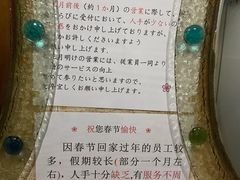 月前後（約1か月）の営業に際して、
らびに受付において、人手が少ない
惑をおかけ申し上げておりますが、
かお許しくださいますよう
い申し上げます。
月明けの営業には、従業員一同より
のサービスの向上
て参りたいと思いますので、
お願い申し上げます。
祝您春节愉快
因春节回家过年的员工较
多，假期较长(部分一个月左
右)，人手十分缺乏,有服务不周